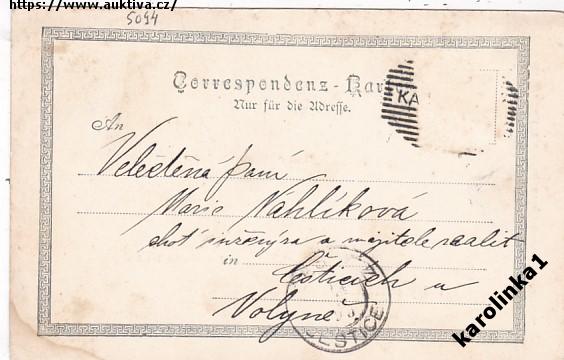 https://www.auktiva.cz/
5094
Correspondenz-Kar
Nur für die Adresse.
KA
An
Velectěná paní
Marie Náhlíková
choť inženýra a majitele realit
in Čěsticích u
Volyně
ĚSTICE
karolinka1